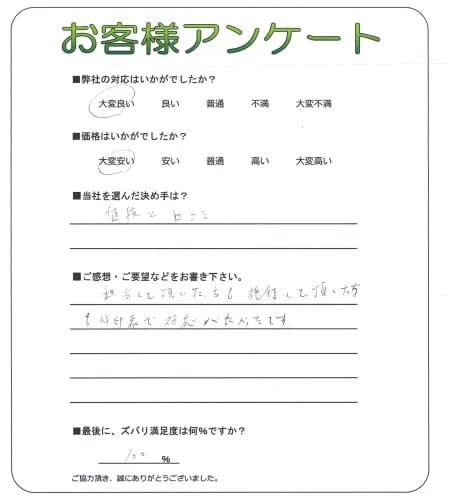 お客様アンケート
■弊社の対応はいかがでしたか？
大変良い 良い 普通 不満 大変不満
■価格はいかがでしたか？
大変安い 安い 普通 高い 大変高い
■当社を選んだ決め手は？
値段と口コミ
■ご感想・ご要望などをお書き下さい。
担当して頂いた方も 施行して頂いた方
も好印象で 対応が良かったです
■最後に、ズバリ満足度は何%ですか？
100 %
ご協力頂き、誠にありがとうございました。